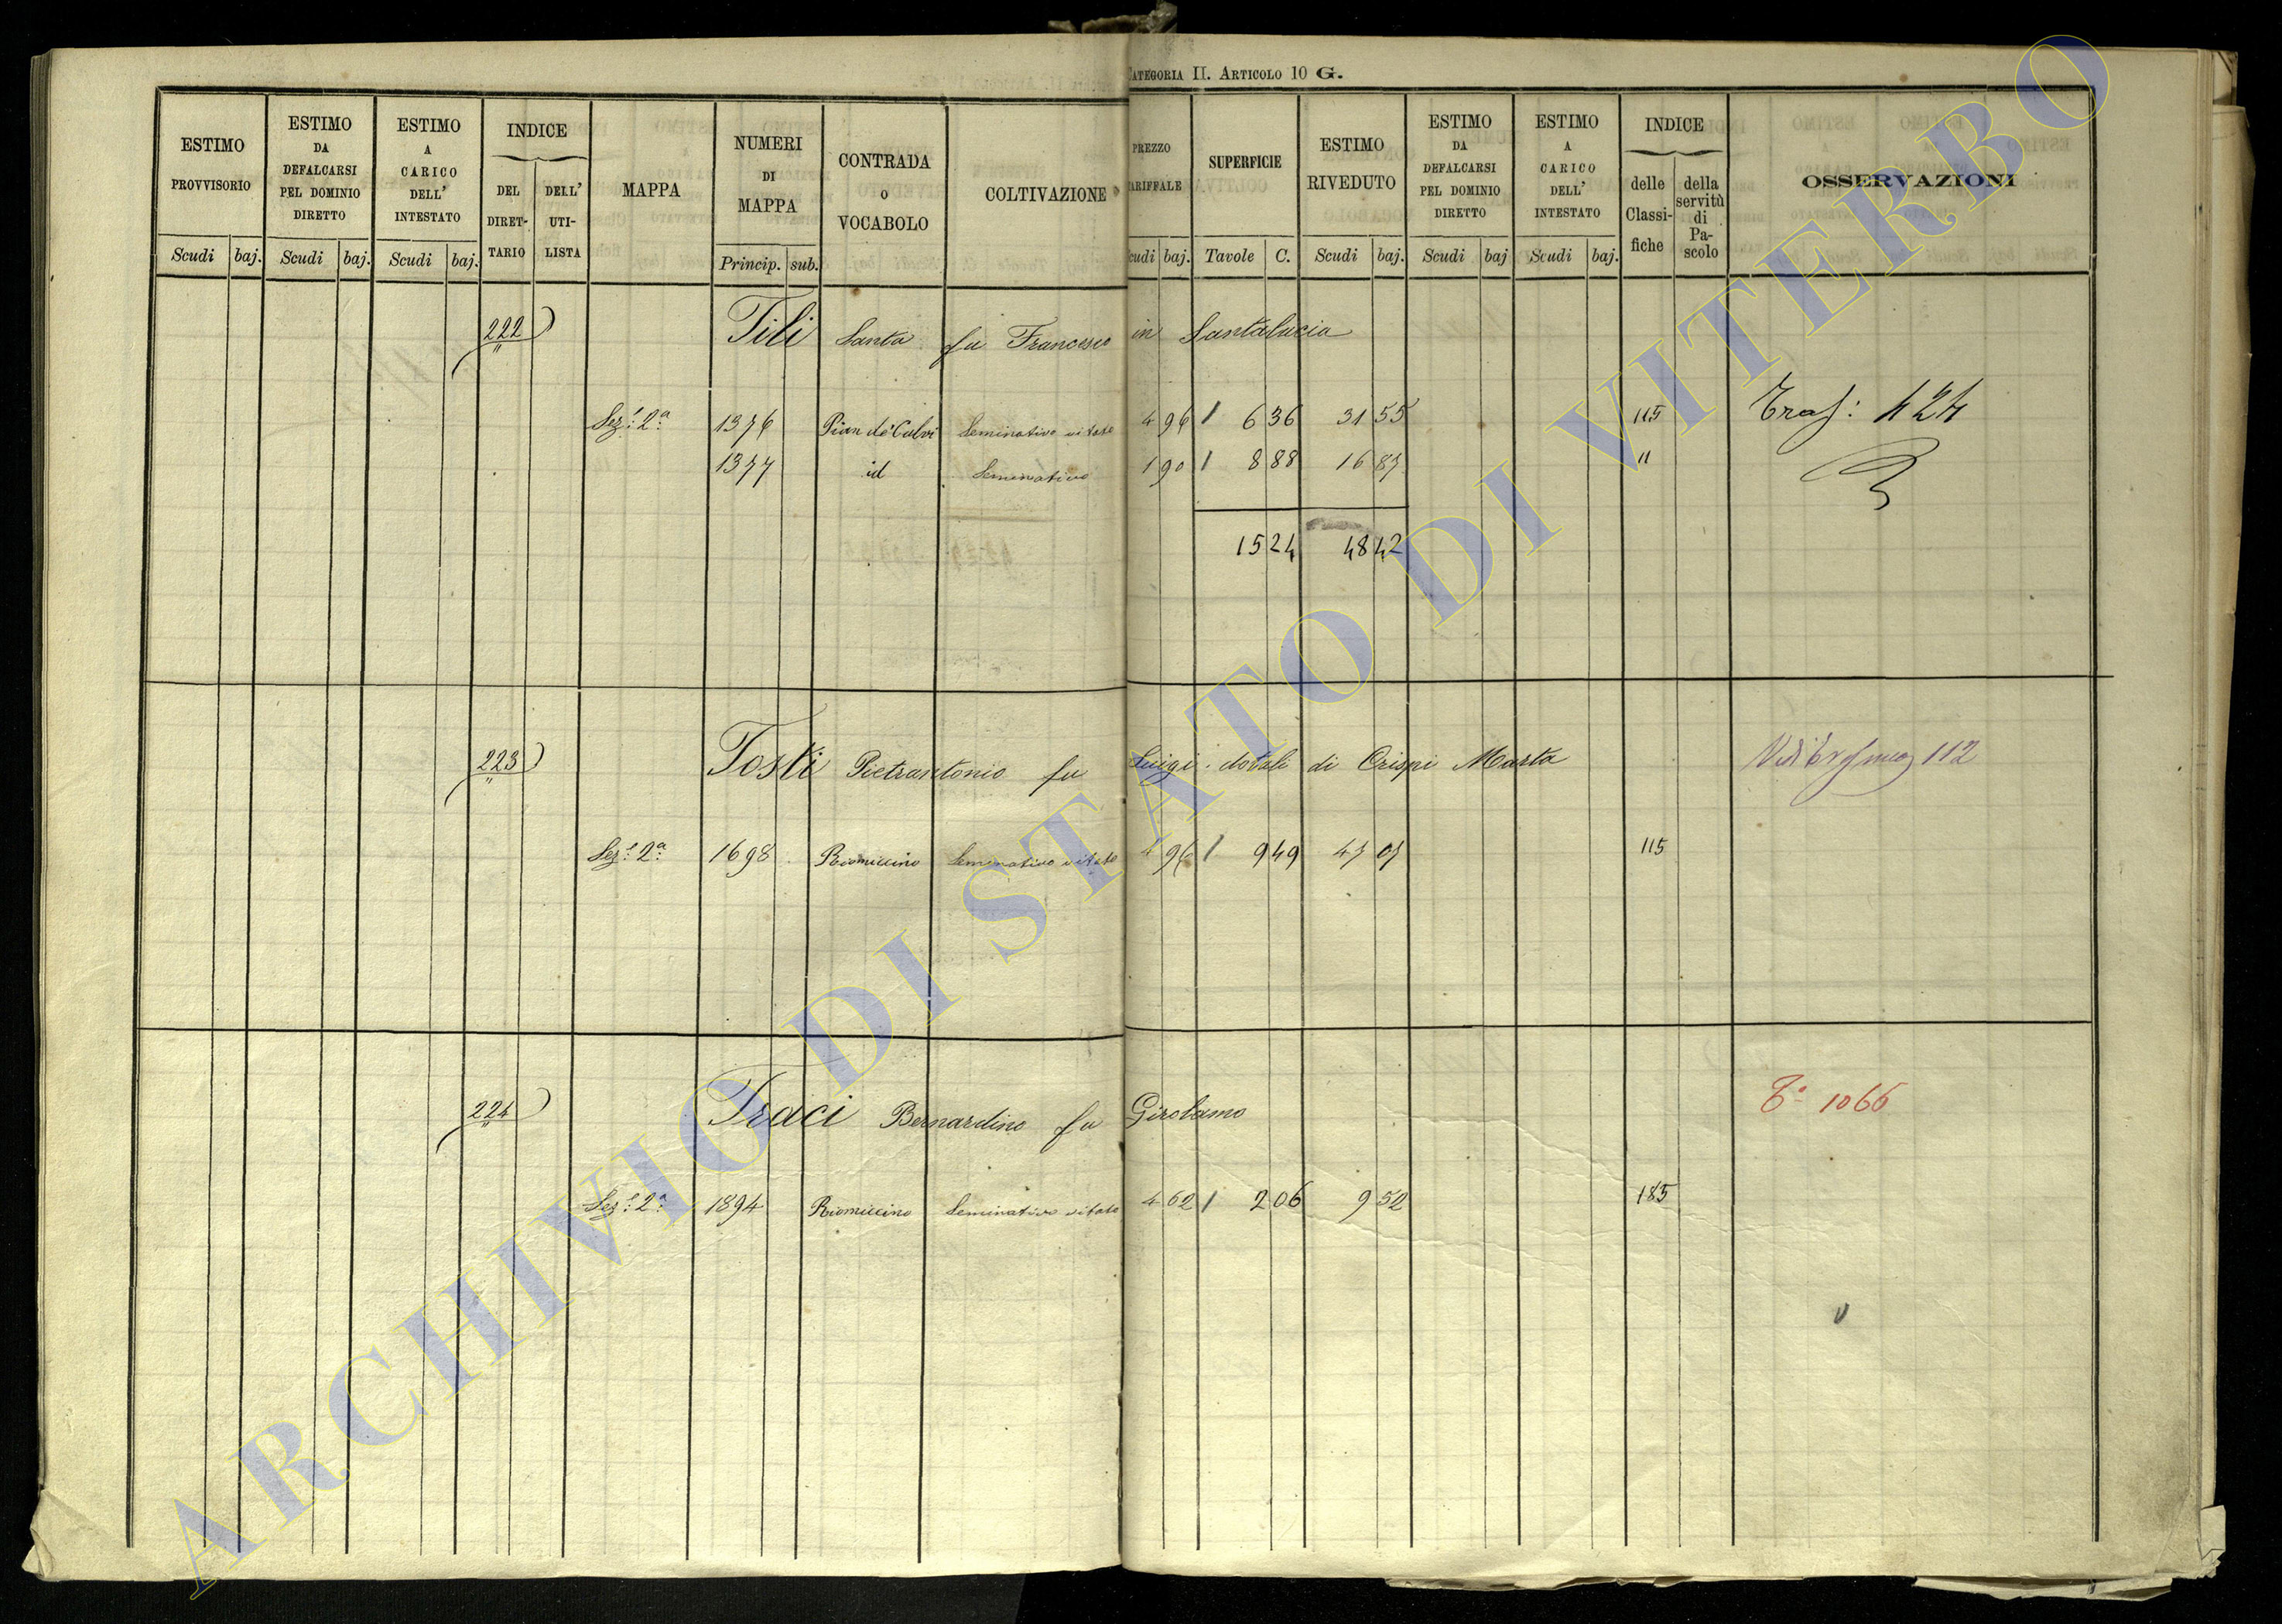 CATEGORIA II. ARTICOLO 10 G.
ESTIMO PROVVISORIO Scudi baj.
ESTIMO DA DEFALCARSI PEL DOMINIO DIRETTO Scudi baj.
ESTIMO A CARICO DELL' INTESTATO Scudi baj.
INDICE DEL DIRET-TARIO DELL' UTI-LISTA
MAPPA
NUMERI DI MAPPA Princip. sub.
CONTRADA o VOCABOLO
COLTIVAZIONE
PREZZO TARIFFALE Scudi baj.
SUPERFICIE Tavole C.
ESTIMO RIVEDUTO Scudi baj.
ESTIMO DA DEFALCARSI PEL DOMINIO DIRETTO Scudi baj
ESTIMO A CARICO DELL' INTESTATO Scudi baj.
INDICE delle Classi-fiche della servitù di Pa-scolo
OSSERVAZIONI
222 Tili Santa fu Francesco in Santalucia
Sez.e 2a 1376 Pian de' Calvi Seminativo vitato 4 96 1 6 36 31 55 115 Tras: 424
1377 id Seminativo 1 90 1 8 88 16 87 "
15 24 48 42
223 Tosti Pietrantonio fu Luigi dotali di Crispi Marta 112
Sez.e 2a 1698 Riomiccino Seminativo vitato 4 96 1 9 49 47 07 115
224 Traci Bernardino fu Girolamo T.a 1066
Sez.e 2a 1894 Riomiccino Seminativo vitato 4 62 1 2 06 9 52 185
ARCHIVIO DI STATO DI VITERBO